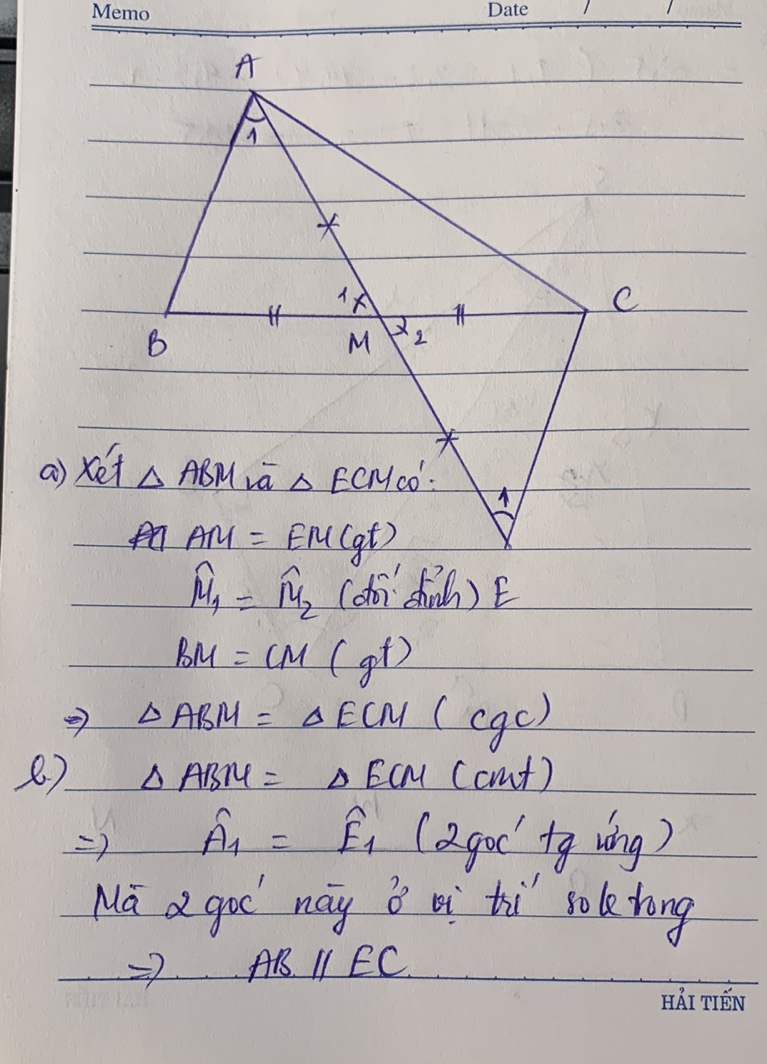 Memo Date / /
A
1
1
B M 2 C
1
a) Xét △ ABM và △ ECM có:
AM = EM (gt)
M̂₁ = M̂₂ (đối đỉnh) E
BM = CM (gt)
=> △ ABM = △ ECM (cgc)
b) △ ABM = △ ECM (cmt)
=> Â₁ = Ê₁ (2 góc tg ứng)
Mà 2 góc này ở vị trí so le tong
=> AB // EC
HẢI TIẾN